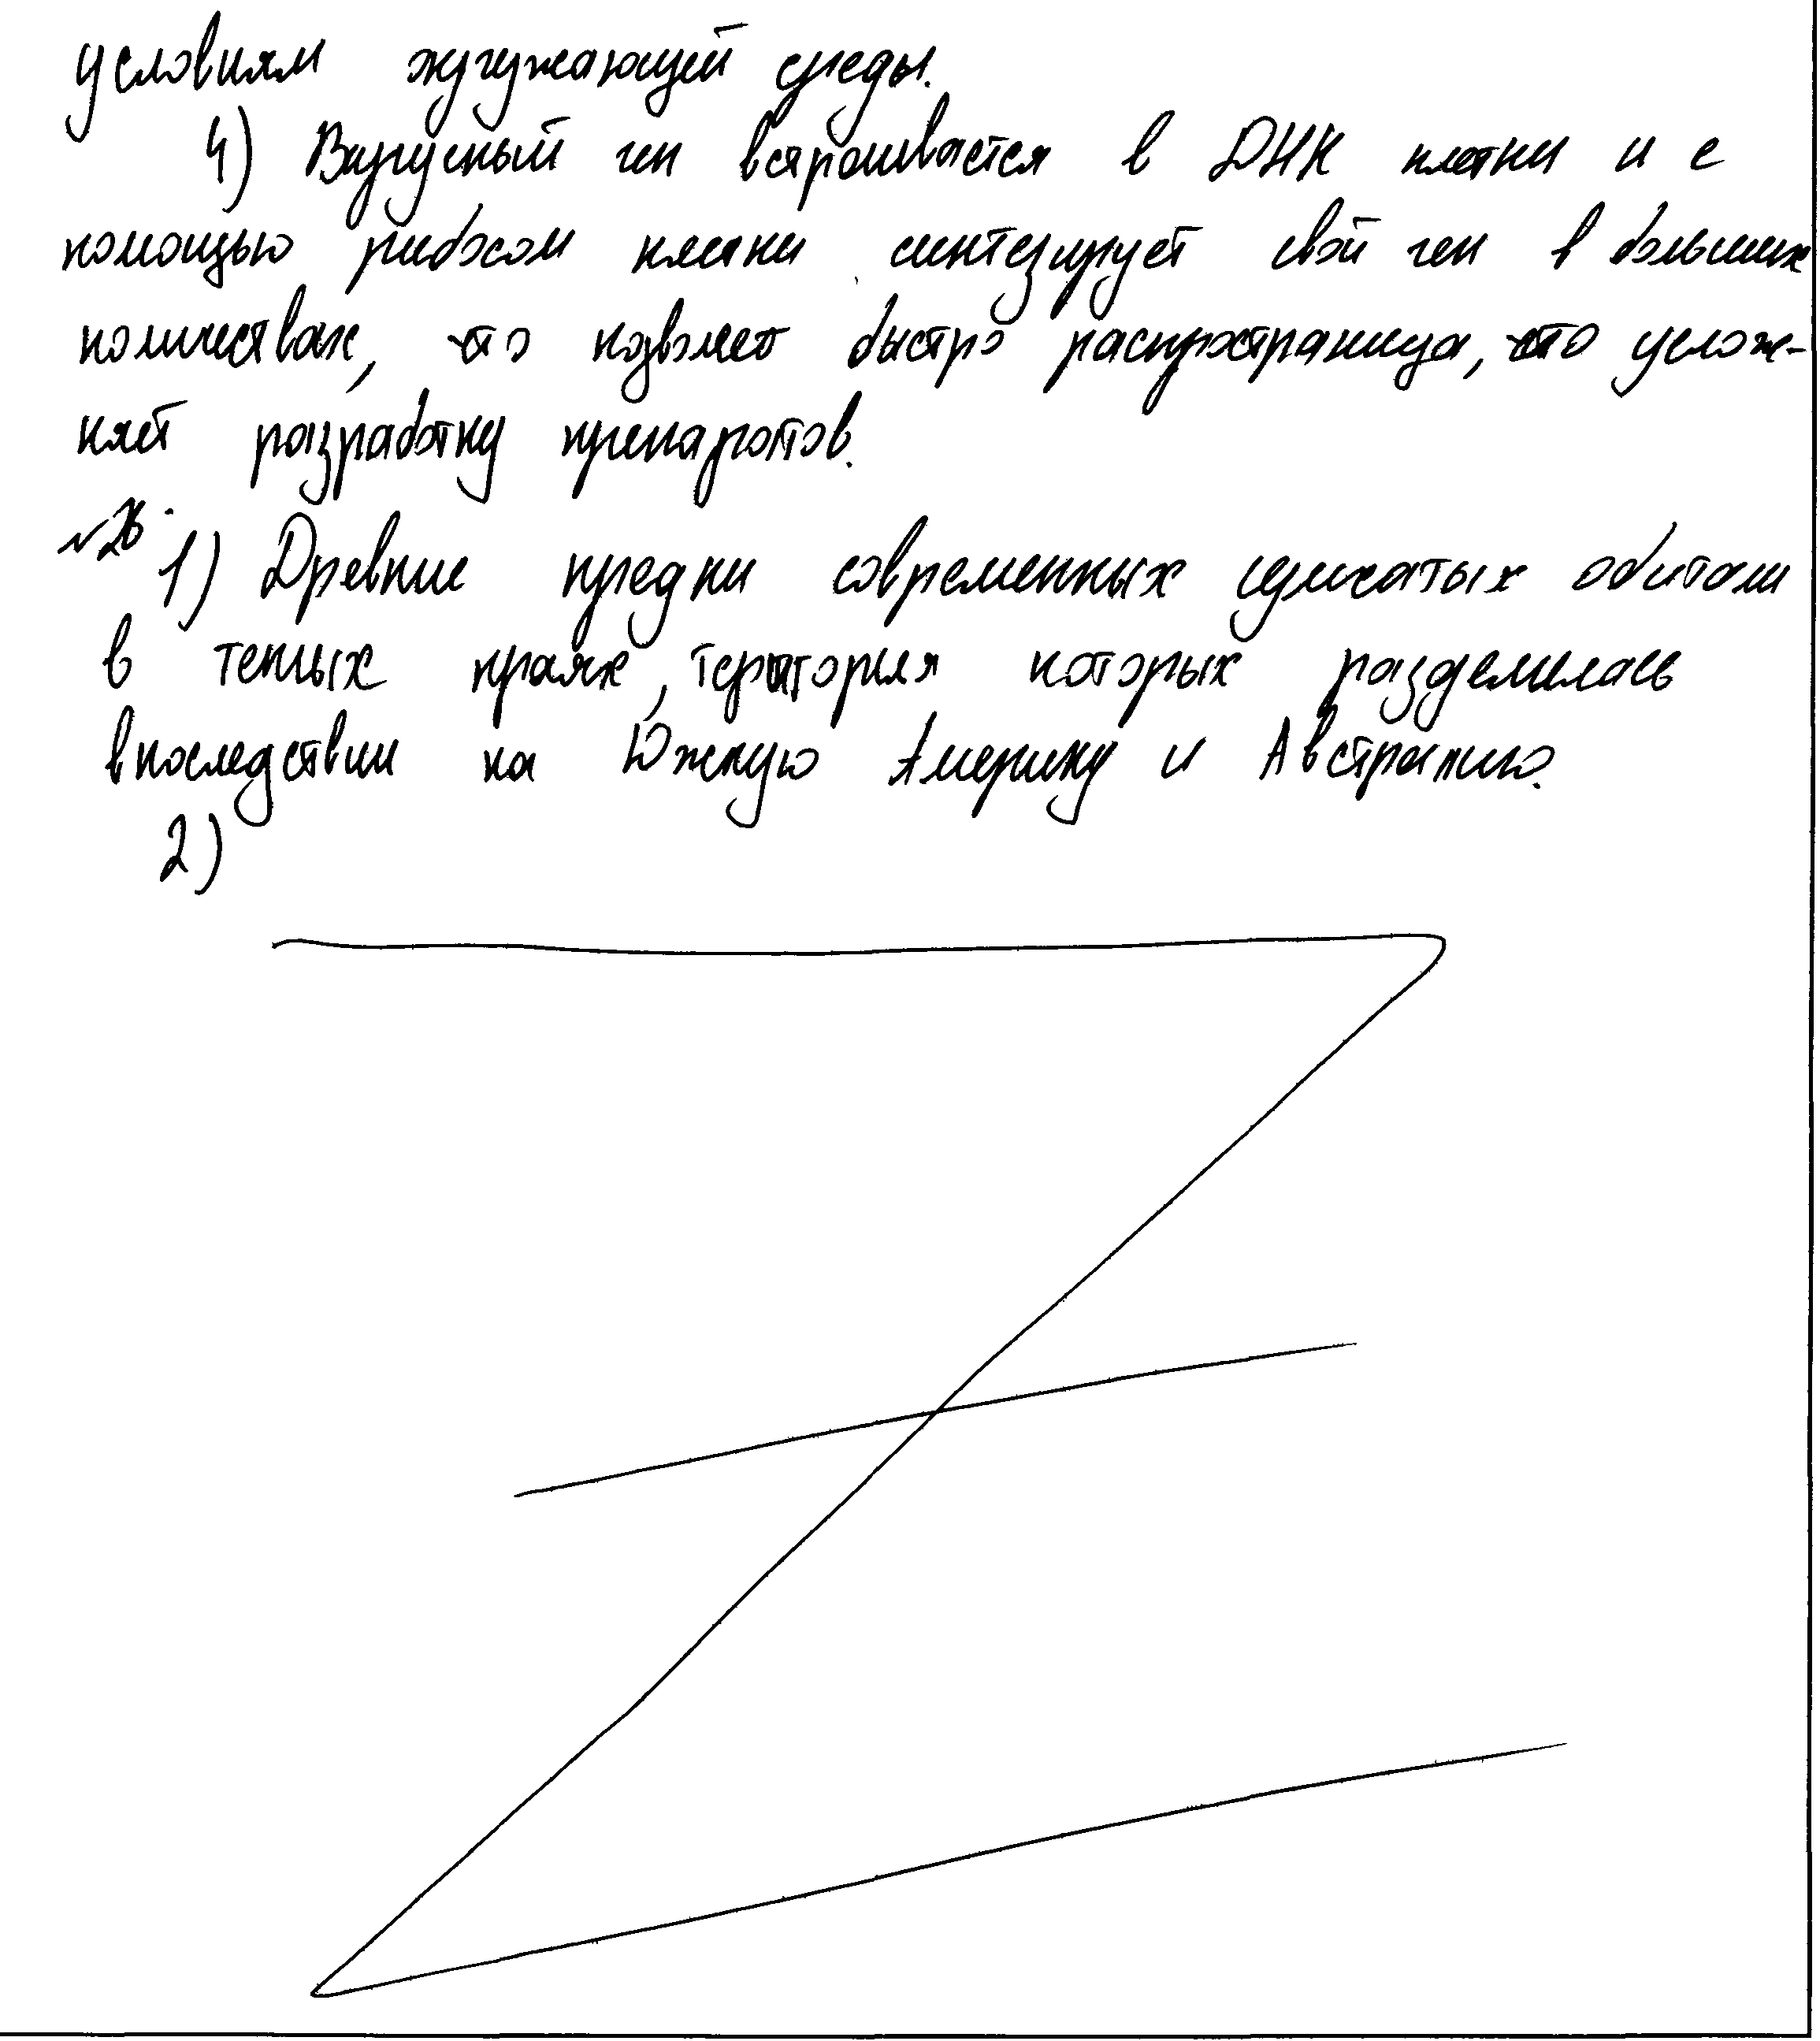 условиям окружающей среды.
4) Вирусный ген встраивается в ДНК клетки и с
помощью рибосом клетки синтезирует свой ген в больших
количествах, что позволяет быстро распространица, что услож-
няет разработку препаратов.
№26. 1) Древние предки современных сумчатых обитали
в теплых краях, територия которых разделилась
впоследствии на Южную Америку и Австралию.
2)